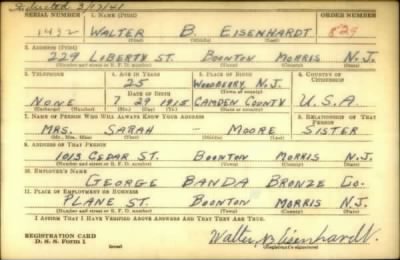 Inducted 3/17/41
SERIAL NUMBER 1. NAME (Print) ORDER NUMBER
1492 WALTER B. EISENHARDT 829
(First) (Middle) (Last)
2. ADDRESS (Print)
229 LIBERTY ST. BOONTON MORRIS N.J.
(Number and street or R. F. D. number) (Town) (County) (State)
3. TELEPHONE 4. AGE IN YEARS 5. PLACE OF BIRTH 6. COUNTRY OF CITIZENSHIP
25 WOODBERRY N.J.
DATE OF BIRTH (Town or county)
NONE 7 29 1915 CAMDEN COUNTY U.S.A.
(Mo.) (Day) (Yr.) (State or country)
7. NAME OF PERSON WHO WILL ALWAYS KNOW YOUR ADDRESS 8. RELATIONSHIP OF THAT PERSON
MRS. SARAH - MOORE SISTER
(Mr., Mrs., Miss) (First) (Middle) (Last)
9. ADDRESS OF THAT PERSON
1013 CEDAR ST. BOONTON MORRIS N.J.
(Number and street or R. F. D. number) (Town) (County) (State)
10. EMPLOYER'S NAME
GEORGE BANDA BRONZE CO.
11. PLACE OF EMPLOYMENT OR BUSINESS
PLANE ST. BOONTON MORRIS N.J.
(Number and street or R. F. D. number) (Town) (County) (State)
I AFFIRM THAT I HAVE VERIFIED ABOVE ANSWERS AND THAT THEY ARE TRUE.
REGISTRATION CARD
D. S. S. Form 1 (over) Walter B Eisenhardt
(Registrant's signature)